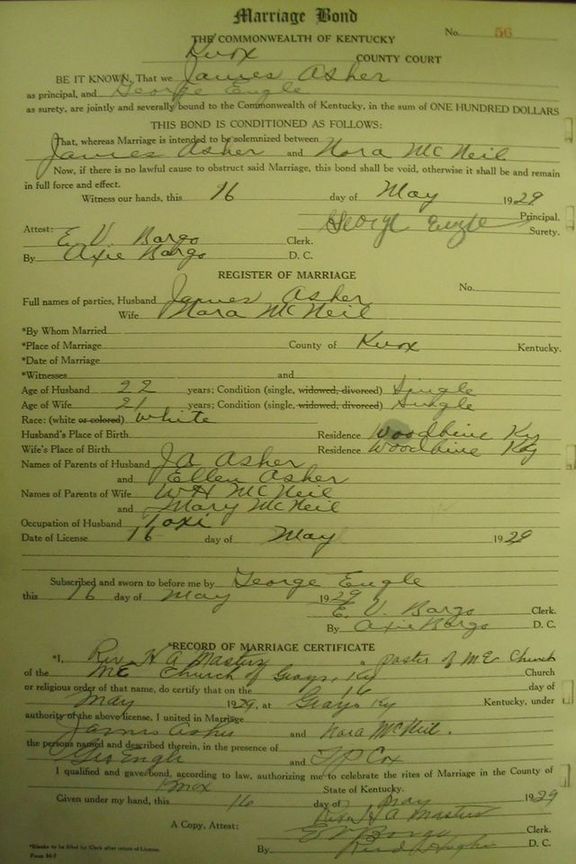 Marriage Bond
THE COMMONWEALTH OF KENTUCKY
No. 56
Knox COUNTY COURT
BE IT KNOWN, That we James Asher
as principal, and George Engle
as surety, are jointly and severally bound to the Commonwealth of Kentucky, in the sum of ONE HUNDRED DOLLARS
THIS BOND IS CONDITIONED AS FOLLOWS:
That, whereas Marriage is intended to be solemnized between
James Asher and Nora McNeil
Now, if there is no lawful cause to obstruct said Marriage, this bond shall be void, otherwise it shall be and remain
in full force and effect.
Witness our hands, this 16 day of May 1929
Principal.
George Engle Surety.
Attest:
E. V. Bargo Clerk.
By Axie Bargo D. C.
REGISTER OF MARRIAGE
No.
Full names of parties, Husband James Asher
Wife Nora McNeil
*By Whom Married
*Place of Marriage County of Knox Kentucky.
*Date of Marriage
*Witnesses and
Age of Husband 22 years; Condition (single, widowed, divorced) Single
Age of Wife 21 years; Condition (single, widowed, divorced) Single
Race: (white or colored) White
Husband's Place of Birth Residence Woodbine Ky
Wife's Place of Birth Residence Woodbine Ky
Names of Parents of Husband Asher
and Ellen Asher
Names of Parents of Wife W H McNeil
and Mary McNeil
Occupation of Husband Taxi
Date of License 16 day of May 1929
Subscribed and sworn to before me by George Engle
this 16 day of May 1929
E. V. Bargo Clerk.
By Axie Bargo D. C.
*RECORD OF MARRIAGE CERTIFICATE
*I, Rev. H A Masters, pastor of M E Church
of the ME Church of Grays, Ky Church
or religious order of that name, do certify that on the 16 day of
May 1929, at Grays Ky Kentucky, under
authority of the above license, I united in Marriage
James Asher and Nora McNeil.
the persons named and described therein, in the presence of
Geo Engle and Cox
I qualified and gave bond, according to law, authorizing me to celebrate the rites of Marriage in the County of
Knox State of Kentucky.
Given under my hand, this 16 day of May 1929
Rev H A Masters
A Copy, Attest: E V Bargo Clerk
By D. C.
*Blanks to be filled by Clerk after return of License.